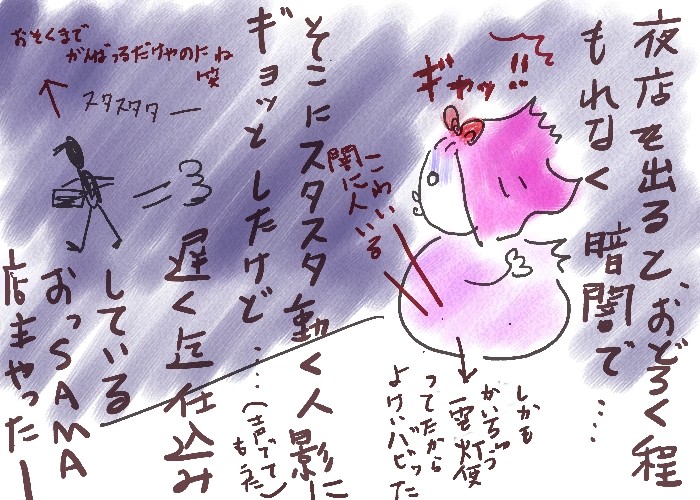 夜店を出ると、おどろく程
もれなく暗闇で…
ギャッ!!
こわい
闇に人いる
しかも
かいちゅう
電灯使
ってたから
よけいビビった
そこにスタスタ動く人影に
ギョッとしたけど……(声でてもうた)
遅く迄仕込み
している
おっSAMA
店主やったー
スタスタタ―
おそくまで
がんばってるだけやのにね
笑